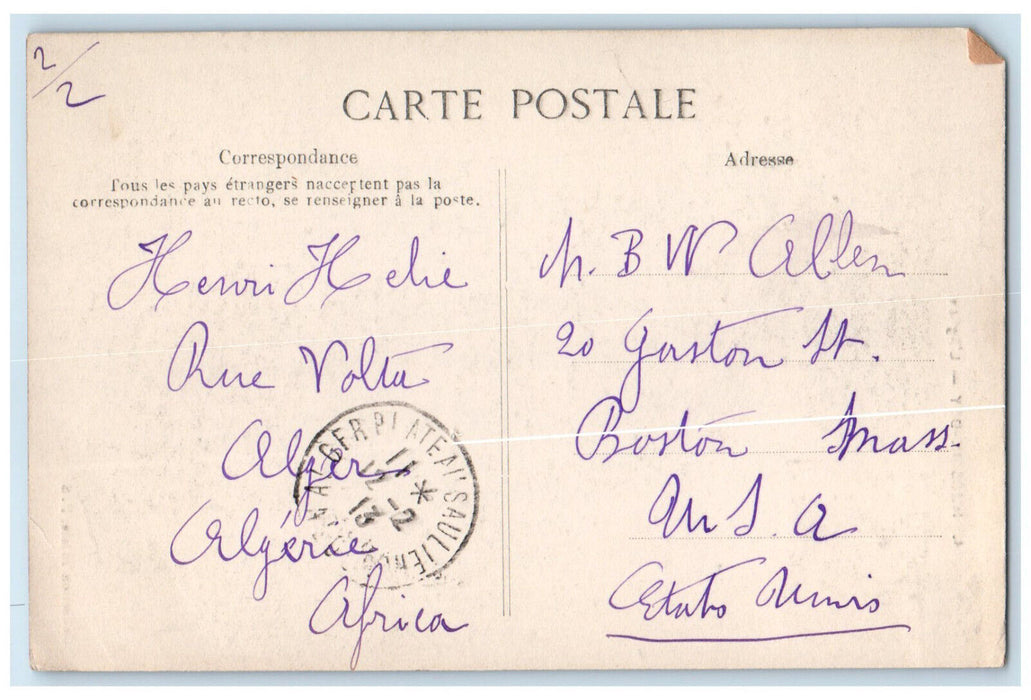 2/2
CARTE POSTALE
Correspondance
Tous les pays étrangers n'acceptent pas la
correspondance au recto, se renseigner à la poste.
Henri Helie
Rue Volta
Alger
Algérie
Africa
ALGER PLATEAU SAULIERE
11 *
12 -2
13
Adresse
M. B W Allen
20 Gaston St.
Boston Mass.
U S. A
Etats Unis